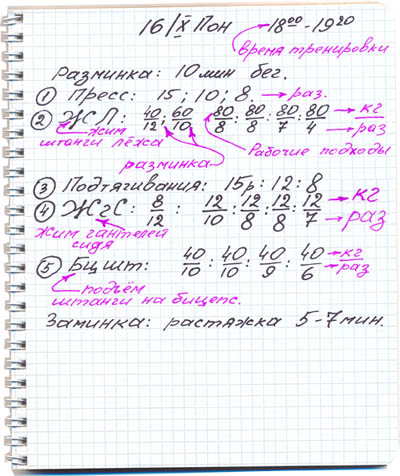 16/X Пон 18⁰⁰-19²⁰
время тренировки
Разминка: 10 мин бег.
① Пресс: 15; 10; 8. → раз.
② ЖЛ: 40/12; 60/10; 80/8 : 80/8 : 80/7 : 80/4 → кг/раз
жим штанги лёжа
разминка
Рабочие подходы
③ Подтягивания: 15р: 12: 8
④ ЖгС: 8/12 : 12/10 : 12/8 : 12/8 : 12/7 → кг/раз
жим гантелей
сидя
⑤ Бц шт: 40/10 : 40/10 : 40/9 : 40/6 → кг/раз
подъём
штанги на бицепс.
Заминка: растяжка 5-7 мин.